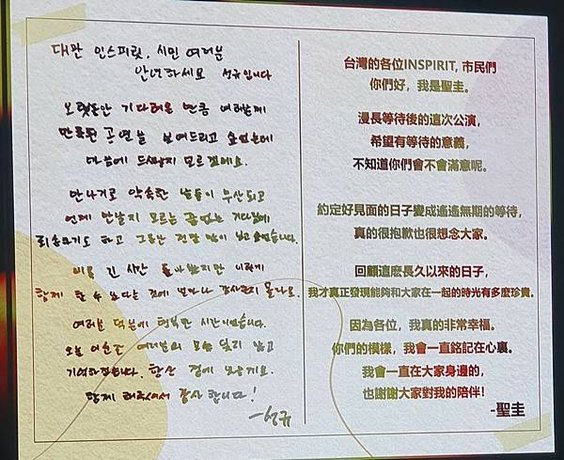 대만 인스피릿, 시민 여러분
안녕하세요 성규입니다
오랫동안 기다려온 만큼 여러분께
만족된 공연을 보여드리고 싶었는데
마음에 드셨을지 모르겠네요.
만나기로 약속한 날들이 무산되고
언제 만날지 모르는 끝없는 기다림에
죄송하기도 하고 그동안 정말 많이 보고 싶었습니다.
비록 긴 시간 돌아왔지만 이렇게
함께 할 수 있다는 것에 얼마나 감사한지 몰라요.
여러분 덕분에 행복한 시간이었습니다.
오늘 이 순간 여러분의 모습 잊지 않고
기억하겠습니다. 항상 곁에 있을게요.
함께 해주셔서 감사합니다!
-성규
台灣的各位INSPIRIT, 市民們
你們好，我是聖圭。
漫長等待後的這次公演，
希望有等待的意義，
不知道你們會不會滿意呢。
約定好見面的日子變成遙遙無期的等待，
真的很抱歉也很想念大家。
回顧這麽長久以來的日子，
我才真正發現能夠和大家在一起的時光有多麽珍貴。
因為各位，我真的非常幸福。
你們的模樣，我會一直銘記在心裏。
我會一直在大家身邊的，
也謝謝大家對我的陪伴！
-聖圭